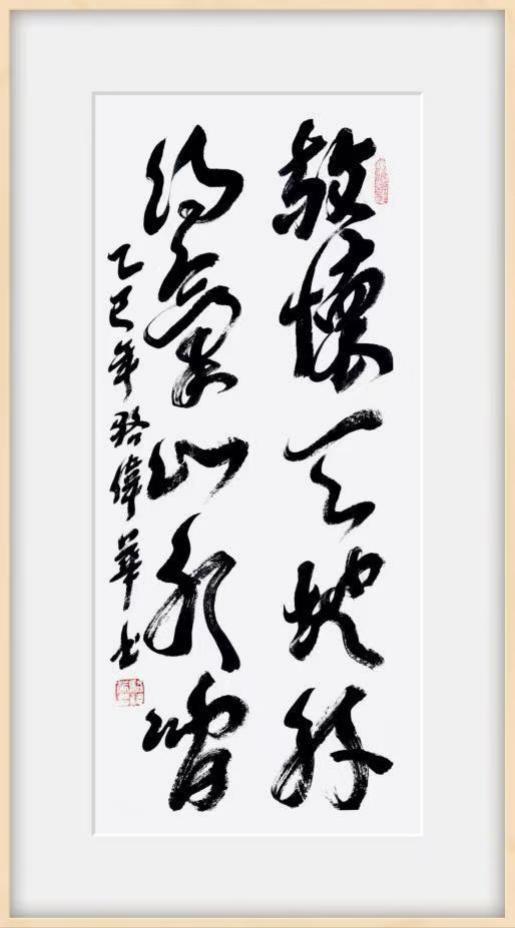 懷天地
得氣山水間
乙巳年駱偉華書